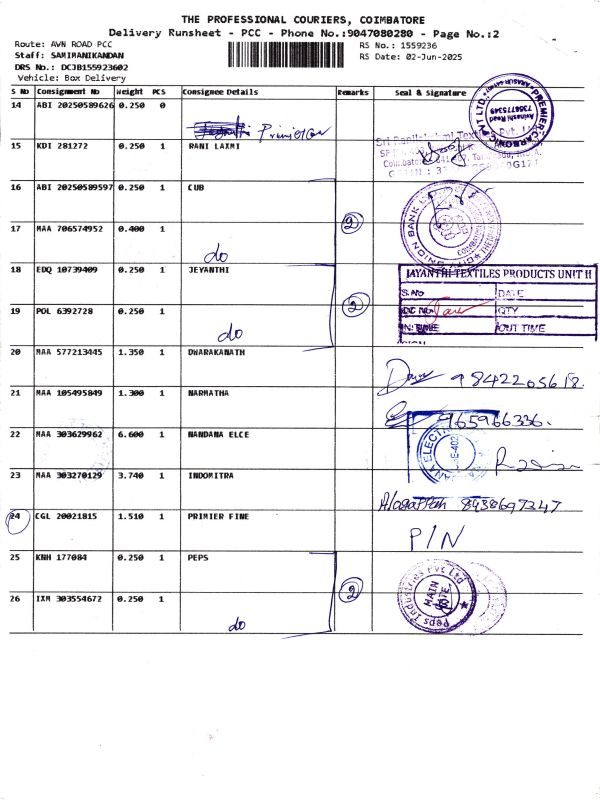 THE PROFESSIONAL COURIERS, COIMBATORE
Delivery Runsheet - PCC - Phone No.:9047080280 - Page No.:2
Route: AVN ROAD PCC
Staff: SAMIMANIKANDAN
DRS No.: DCJB155923602
Vehicle: Box Delivery
RS No.: 1559236
RS Date: 02-Jun-2025
S No Consignment No Weight PCS Consignee Details Remarks Seal & Signature
14 ABI 20250589626 0.250 0
PREMIER CARBONIC PVT LTD.
Avinashi Road
7358775349
15 KDI 281272 0.250 1 RANI LAXMI
16 ABI 20250589597 0.250 1 CUB
17 MAA 706574952 0.400 1
do
2
CITY UNION BANK
18 EDQ 10739409 0.250 1 JEYANTHI
19 POL 6392728 0.250 1
do
2
JAYANTHI TEXTILES PRODUCTS UNIT II
S.NO DATE
DC NO QTY
IN TIME OUT TIME
20 MAA 577213445 1.350 1 DWARAKANATH
9842205618.
21 MAA 105495849 1.300 1 NARMATHA
22 MAA 303629962 6.600 1 NANDANA ELCE
23 MAA 303270129 3.740 1 INDOMITRA
24 CGL 20021815 1.510 1 PRIMIER FINE
P/N
25 KNH 177084 0.250 1 PEPS
26 IXM 303554672 0.250 1
do
2
Peps Industries Pvt Ltd
MAIN GATE